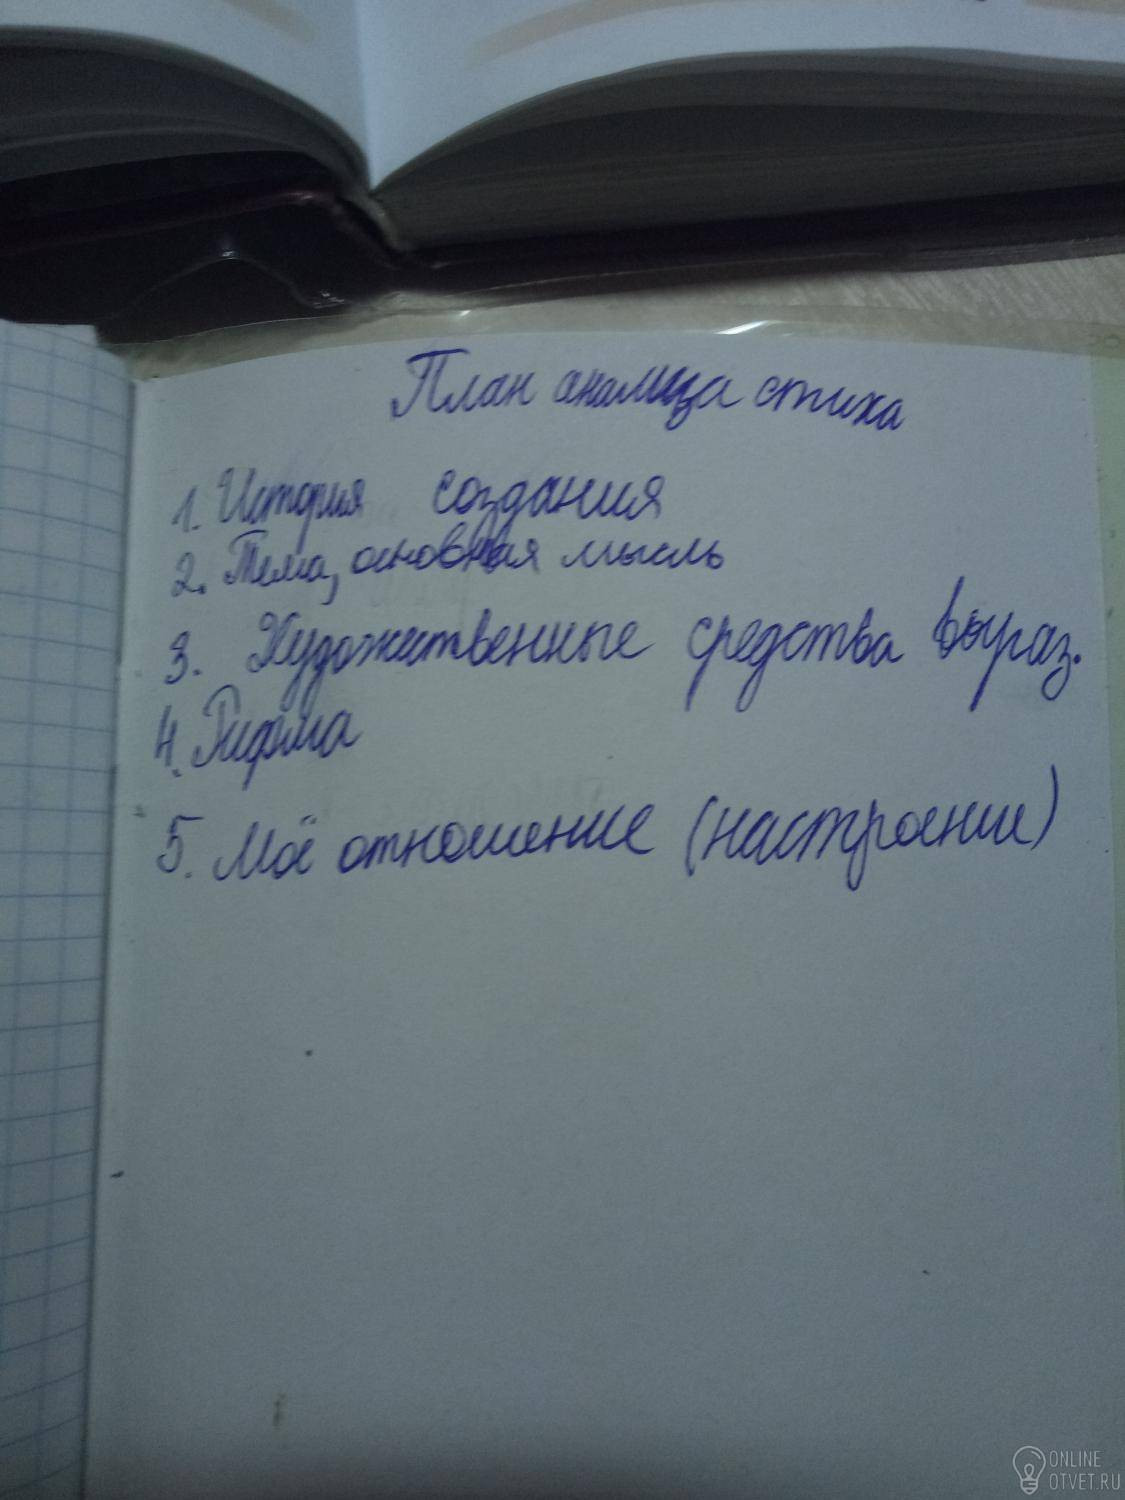 План анализа стиха
1. История создания
2. Тема, основная мысль
3. Художественные средства выраз.
4. Рифма
5. Моё отношение (настроение)
ONLINE
OTVET.RU